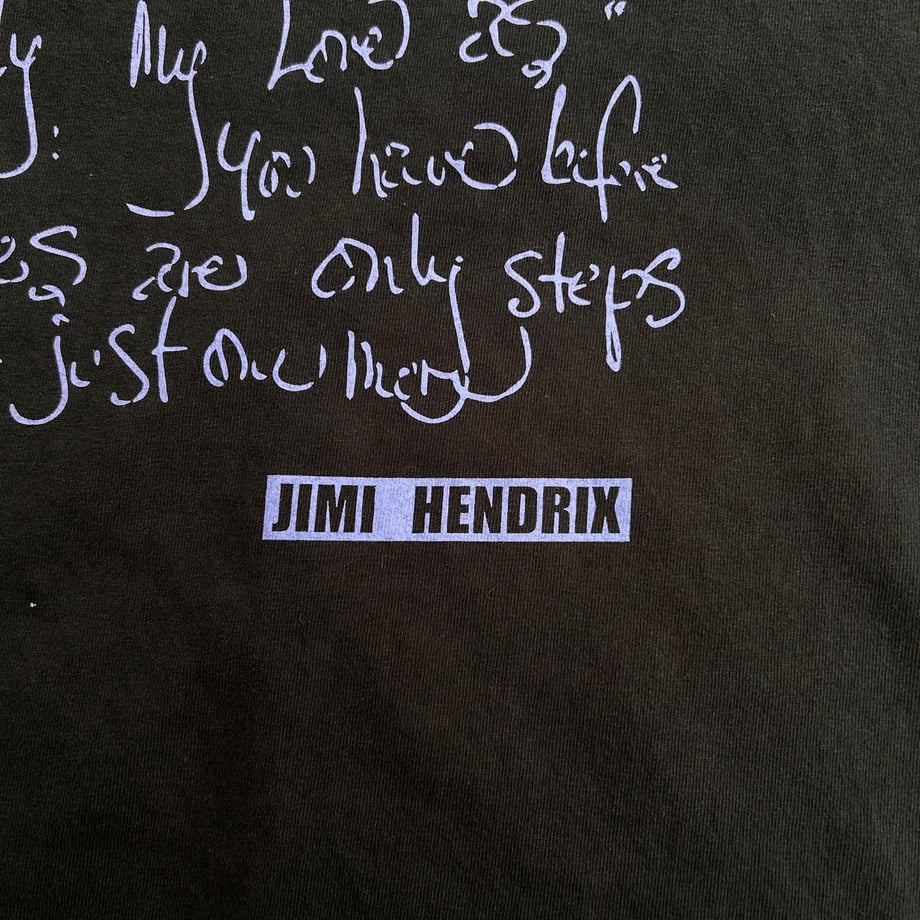 My Love as"
: you have before
are only steps
just one more
JIMI HENDRIX